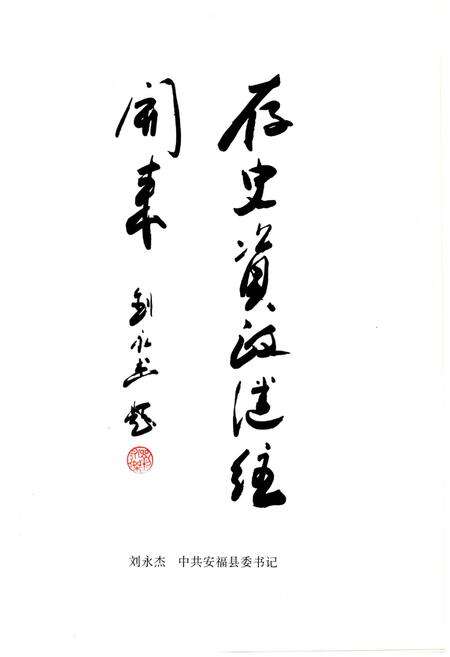 存史資政继往
開来
刘永杰题
刘永杰 中共安福县委书记